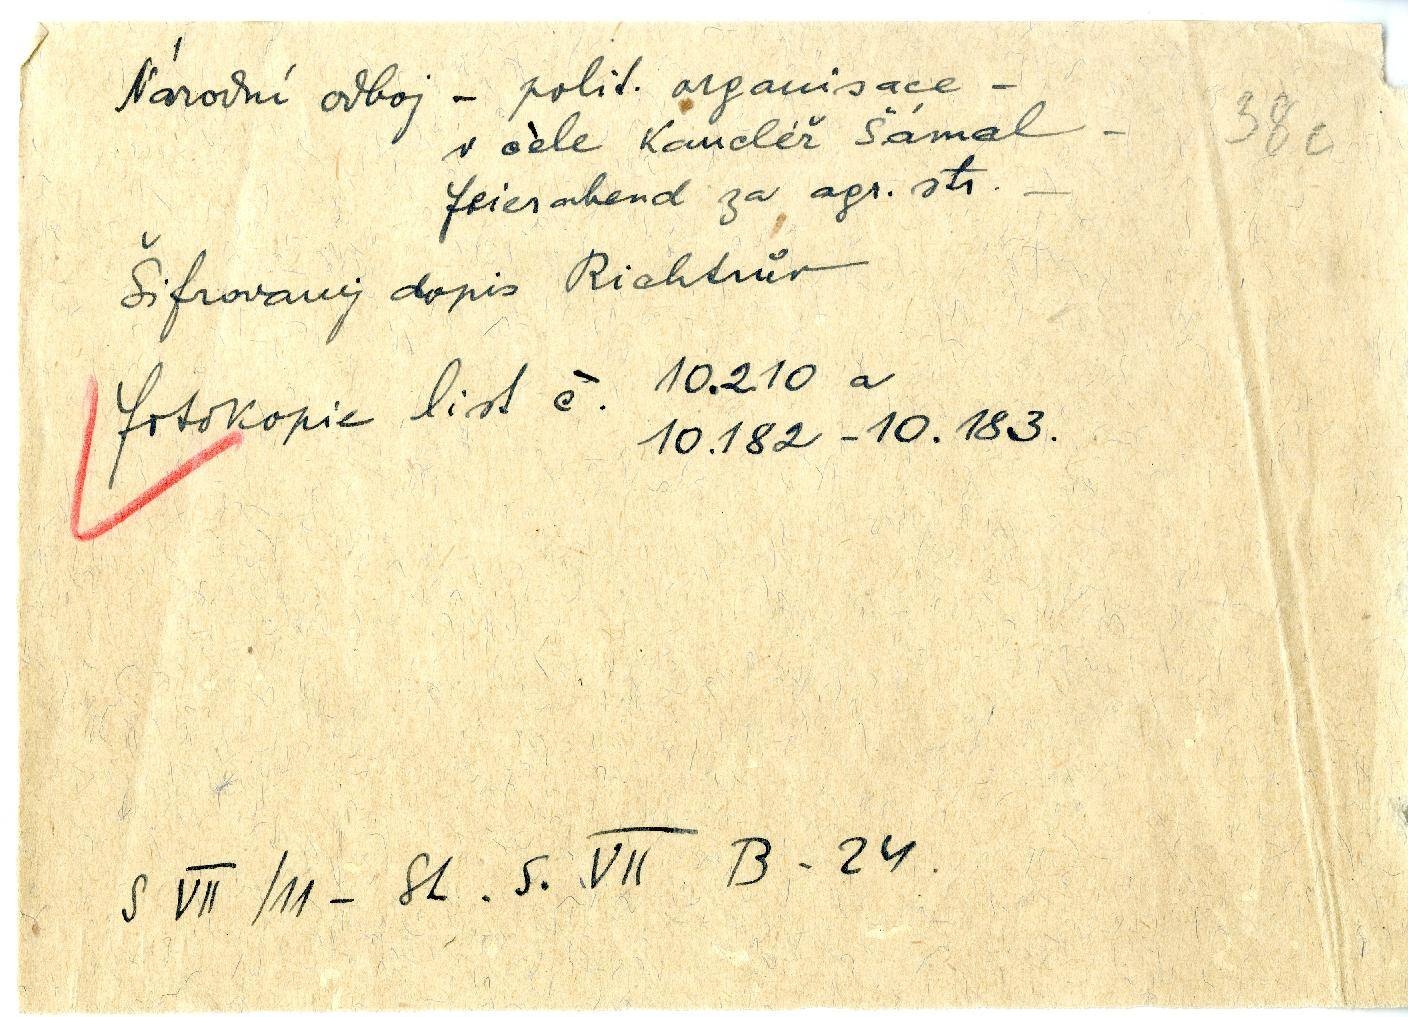 Národní odboj - polit. organisace -
v čele Kancléř Šámal -
Feierabend za agr. str. -
38c
Šifrovaný dopis Richtrův
fotokopie list č. 10.210 a
10.182 - 10.183.
S VII /11 - St. S. VII B - 24.